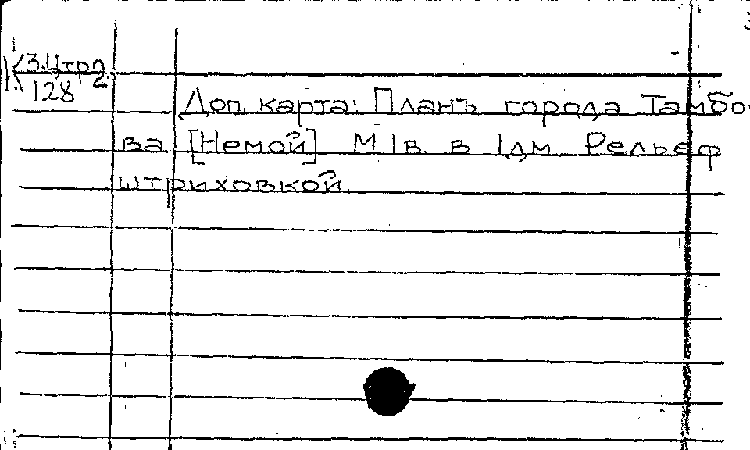 К 3.Цтр2
128
Доп. карта: Планъ города Тамбо
ва [Немой] М 1в. в 1дм. Рельеф
штриховкой.